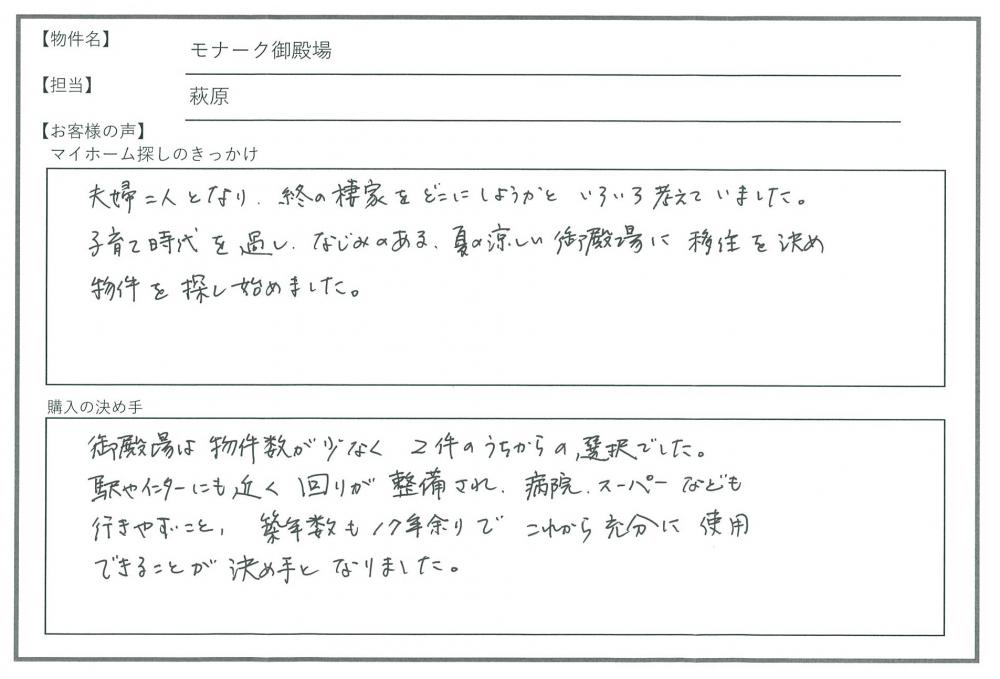 【物件名】
モナーク御殿場
【担当】
萩原
【お客様の声】
マイホーム探しのきっかけ
夫婦二人となり、終の棲家をどこにしようかといろいろ考えていました。
子育て時代を過し、なじみのある、夏の涼しい御殿場に移住を決め
物件を探し始めました。
購入の決め手
御殿場は物件数が少なく 2件のうちからの選択でした。
駅やインターにも近く 回りが整備され、病院、スーパーなども
行きやすいこと、築年数も17年余りでこれから充分に使用
できることが決め手となりました。